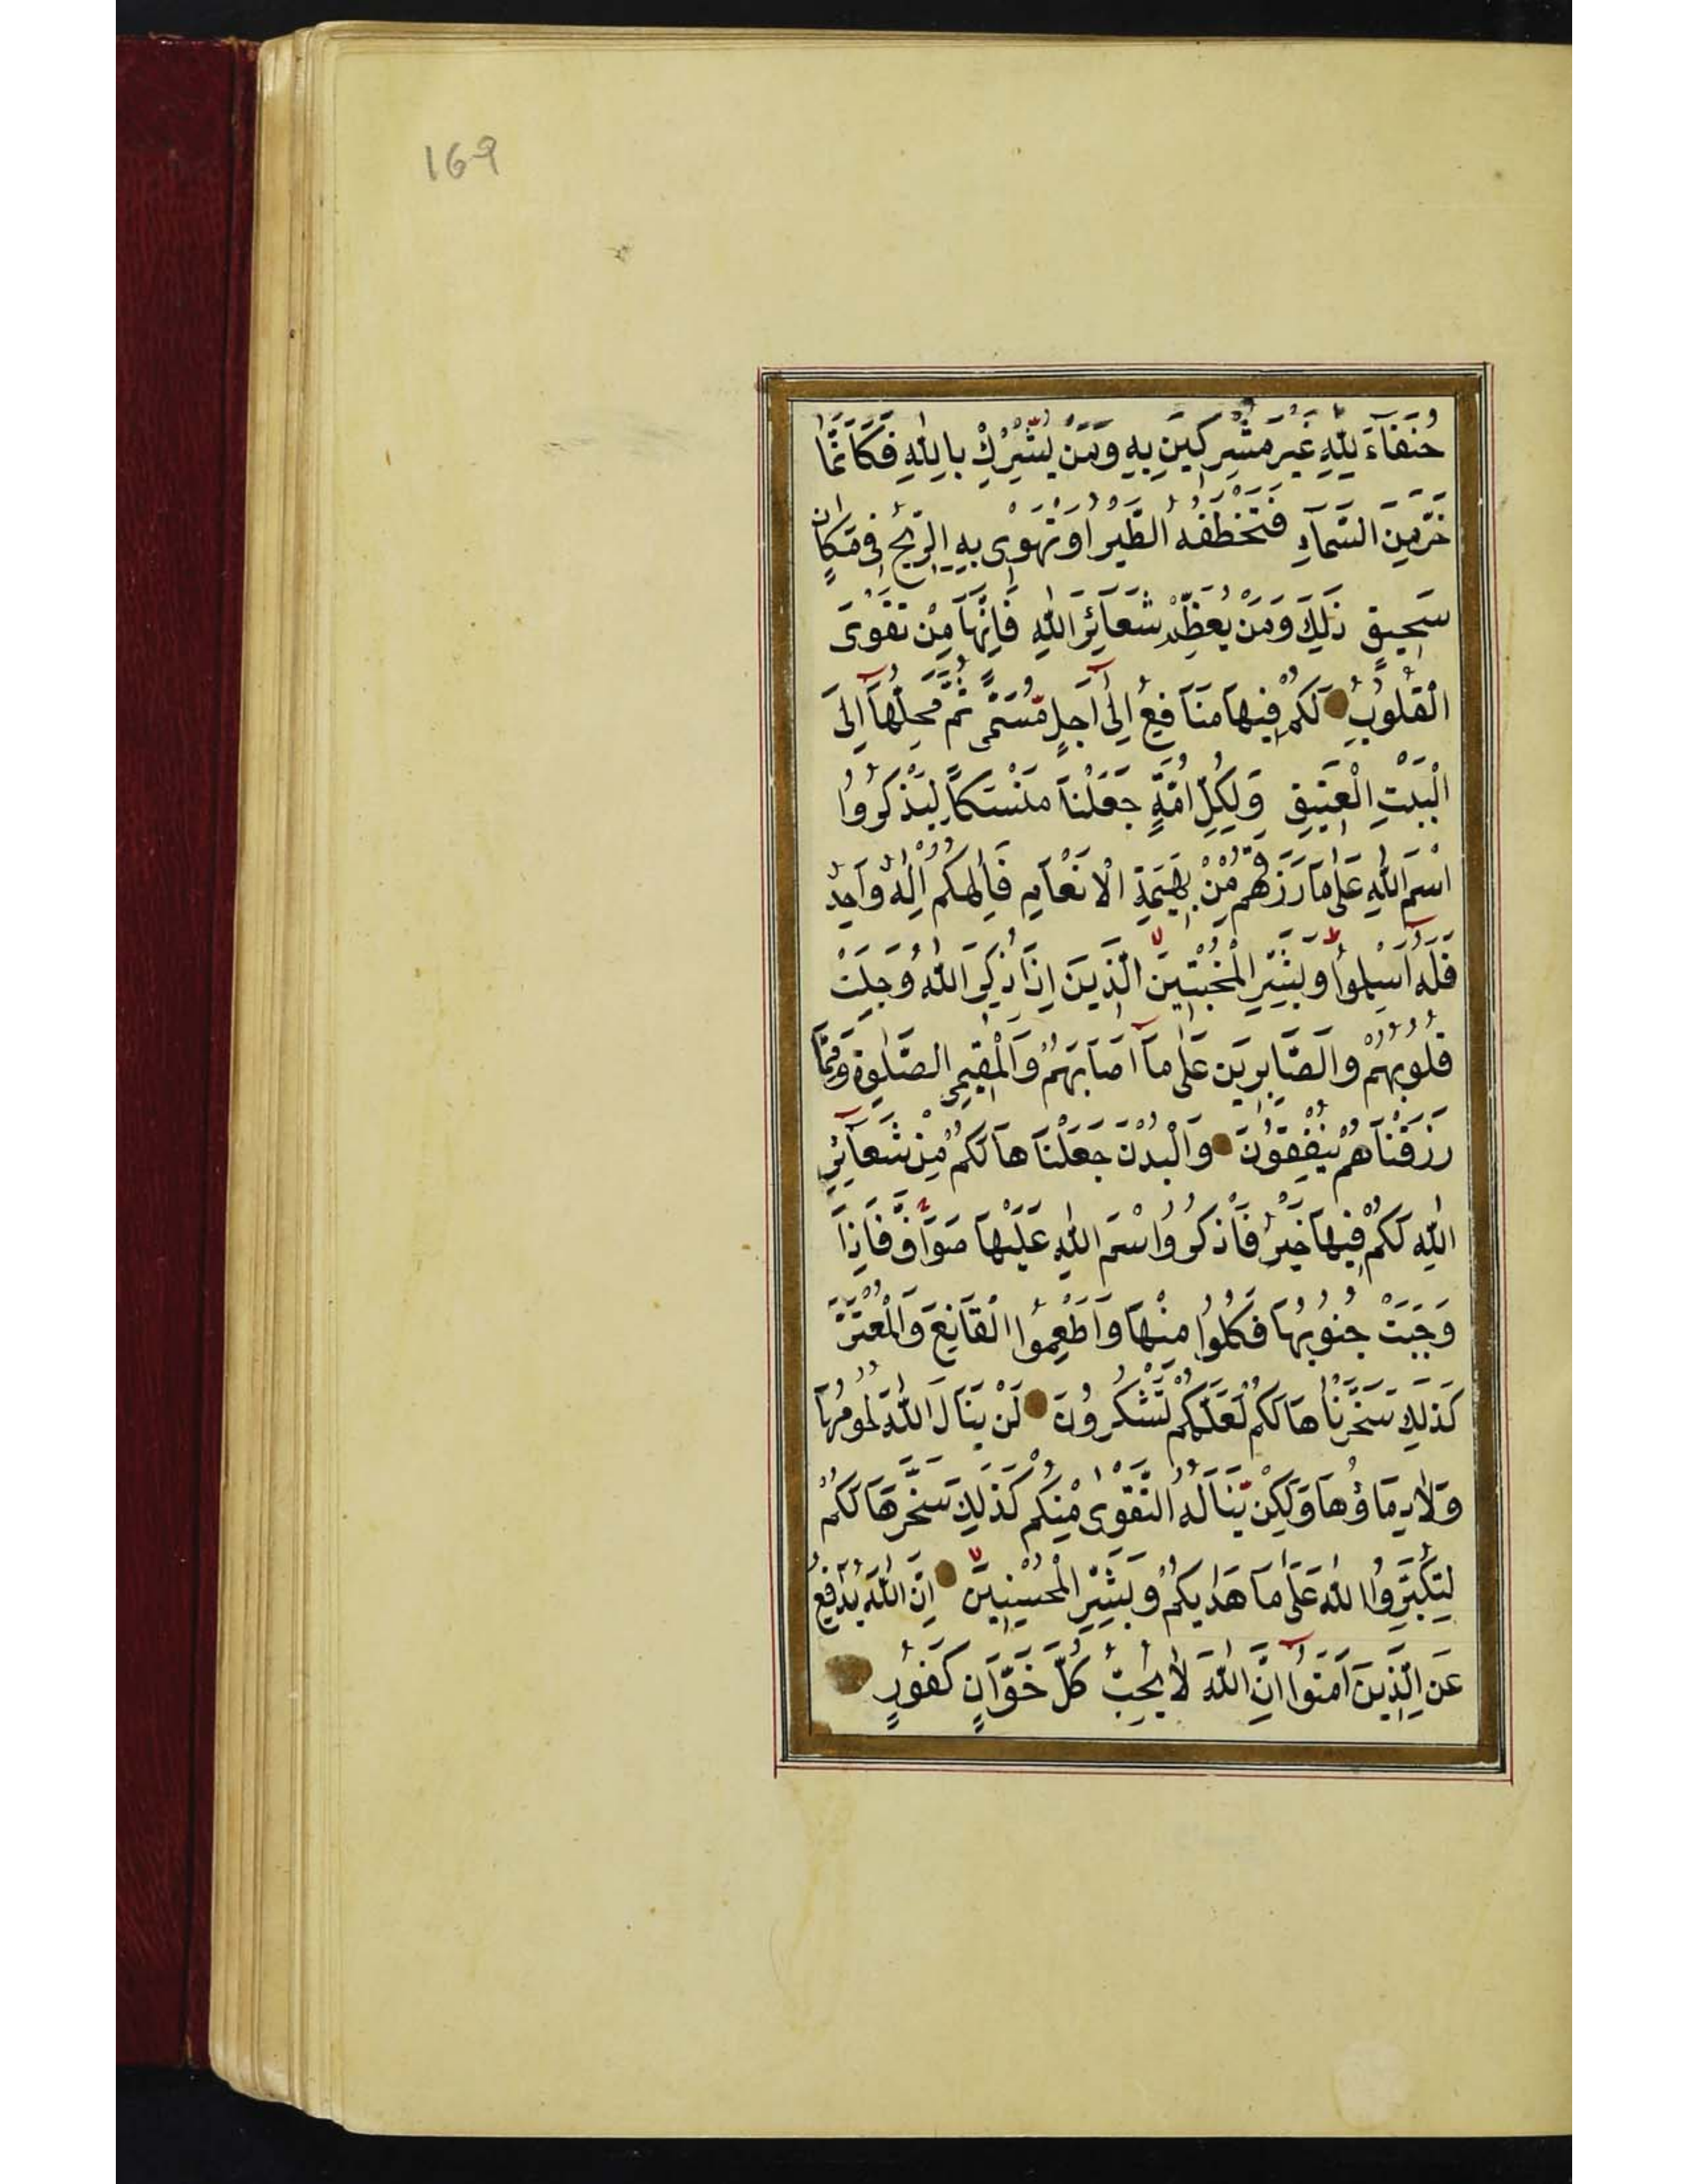 169
حُنَفَآءَ لِلّٰهِ غَيْرَ مُشْرِكِينَ بِهِ وَمَنْ يُشْرِكْ بِاللّٰهِ فَكَاَنَّمَا
خَرَّ مِنَ السَّمَآءِ فَتَخْطَفُهُ الطَّيْرُ اَوْ تَهْوِى بِهِ الرِّيحُ فِى مَكَانٍ
سَحِيقٍ ذٰلِكَ وَمَنْ يُعَظِّمْ شَعَآئِرَ اللّٰهِ فَاِنَّهَا مِنْ تَقْوَى
الْقُلُوبِ لَكُمْ فِيهَا مَنَافِعُ اِلٰٓى اَجَلٍ مُسَمًّى ثُمَّ مَحِلُّهَآ اِلَى
الْبَيْتِ الْعَتِيقِ وَلِكُلِّ اُمَّةٍ جَعَلْنَا مَنْسَكًا لِيَذْكُرُوا
اسْمَ اللّٰهِ عَلٰى مَا رَزَقَهُمْ مِنْ بَهِيمَةِ الْاَنْعَامِ فَاِلٰهُكُمْ اِلٰهٌ وَاحِدٌ
فَلَهُٓ اَسْلِمُوا وَبَشِّرِ الْمُخْبِتِينَ الَّذِينَ اِذَا ذُكِرَ اللّٰهُ وَجِلَتْ
قُلُوبُهُمْ وَالصَّابِرِينَ عَلٰى مَآ اَصَابَهُمْ وَالْمُقِيمِى الصَّلٰوةِ وَمِمَّا
رَزَقْنَاهُمْ يُنْفِقُونَ وَالْبُدْنَ جَعَلْنَاهَا لَكُمْ مِنْ شَعَآئِرِ
اللّٰهِ لَكُمْ فِيهَا خَيْرٌ فَاذْكُرُوا اسْمَ اللّٰهِ عَلَيْهَا صَوَآفَّ فَاِذَا
وَجَبَتْ جُنُوبُهَا فَكُلُوا مِنْهَا وَاَطْعِمُوا الْقَانِعَ وَالْمُعْتَرَّ
كَذٰلِكَ سَخَّرْنَاهَا لَكُمْ لَعَلَّكُمْ تَشْكُرُونَ لَنْ يَنَالَ اللّٰهَ لُحُومُهَا
وَلَا دِمَاؤُهَا وَلٰكِنْ يَنَالُهُ التَّقْوٰى مِنْكُمْ كَذٰلِكَ سَخَّرَهَا لَكُمْ
لِتُكَبِّرُوا اللّٰهَ عَلٰى مَا هَدٰيكُمْ وَبَشِّرِ الْمُحْسِنِينَ اِنَّ اللّٰهَ يُدٰفِعُ
عَنِ الَّذِينَ اٰمَنُوٓا اِنَّ اللّٰهَ لَا يُحِبُّ كُلَّ خَوَّانٍ كَفُورٍ